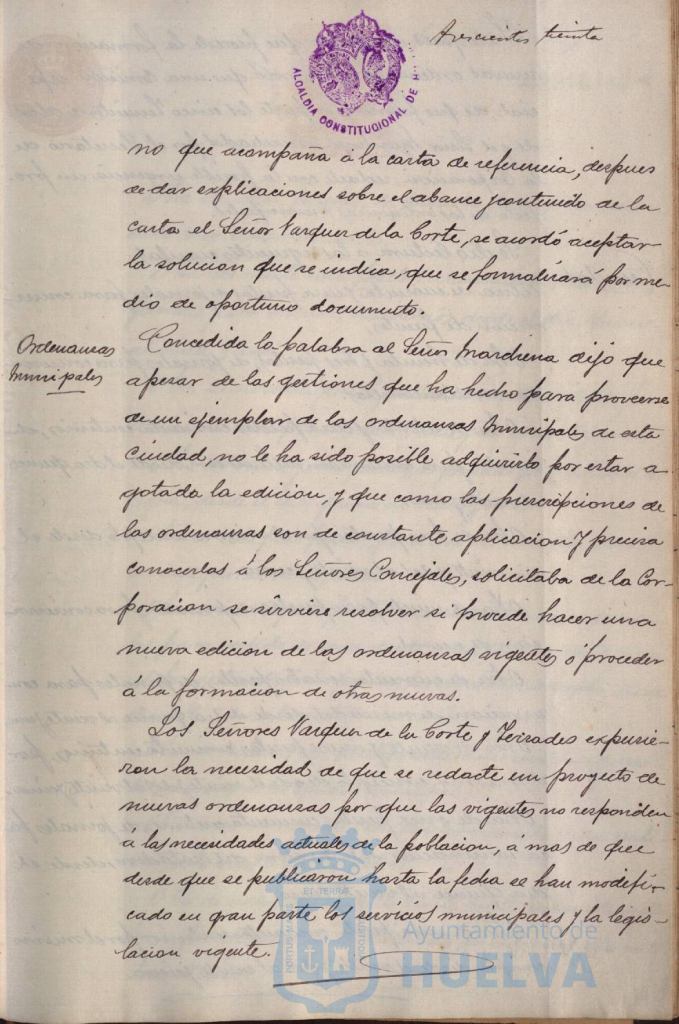 Trescientos treinta
ALCALDIA CONSTITUCIONAL DE H
no que acompaña á la carta de referencia, despues
de dar explicaciones sobre el alcance y contenido de la
carta el Señor Vazquez de la Corte, se acordó aceptar
la solucion que se indica, que se formalizará por me-
dio de oportuno documento.
Ordenanzas
Municipales
Concedida la palabra al Señor Marchena dijo que
apesar de las gestiones que ha hecho para proveerse
de un ejemplar de las ordenanzas Municipales de esta
Ciudad, no le ha sido posible adquirirlo por estar a
gotada la edicion, y que como las prescripciones de
las ordenanzas son de constante aplicacion y precisa
conocerlas á los Señores Concejales, solicitaba de la Cor-
poracion se sirviese resolver si procede hacer una
nueva edicion de las ordenanzas vigentes ó proceder
á la formacion de otras nuevas.
Los Señores Vazquez de la Corte y Terrades expusie-
ron la necesidad de que se redacte un proyecto de
nuevas ordenanzas por que las vigentes no responden
á las necesidades actuales de la poblacion, á mas de que
desde que se publicaron hasta la fecha se han modifi-
cado en gran parte los servicios municipales y la legis-
lacion vigente.
Ayuntamiento de
HUELVA